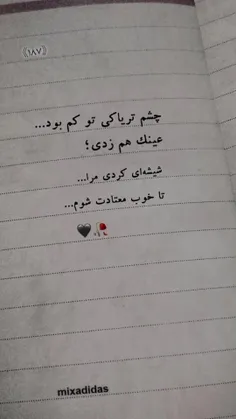 (۱۸۷)
چشم تریاکی تو کم بود...
عینك هم زدی؛
شیشه‌ای کردی مرا...
تا خوب معتادت شوم...
🖤🥀
mixadidas